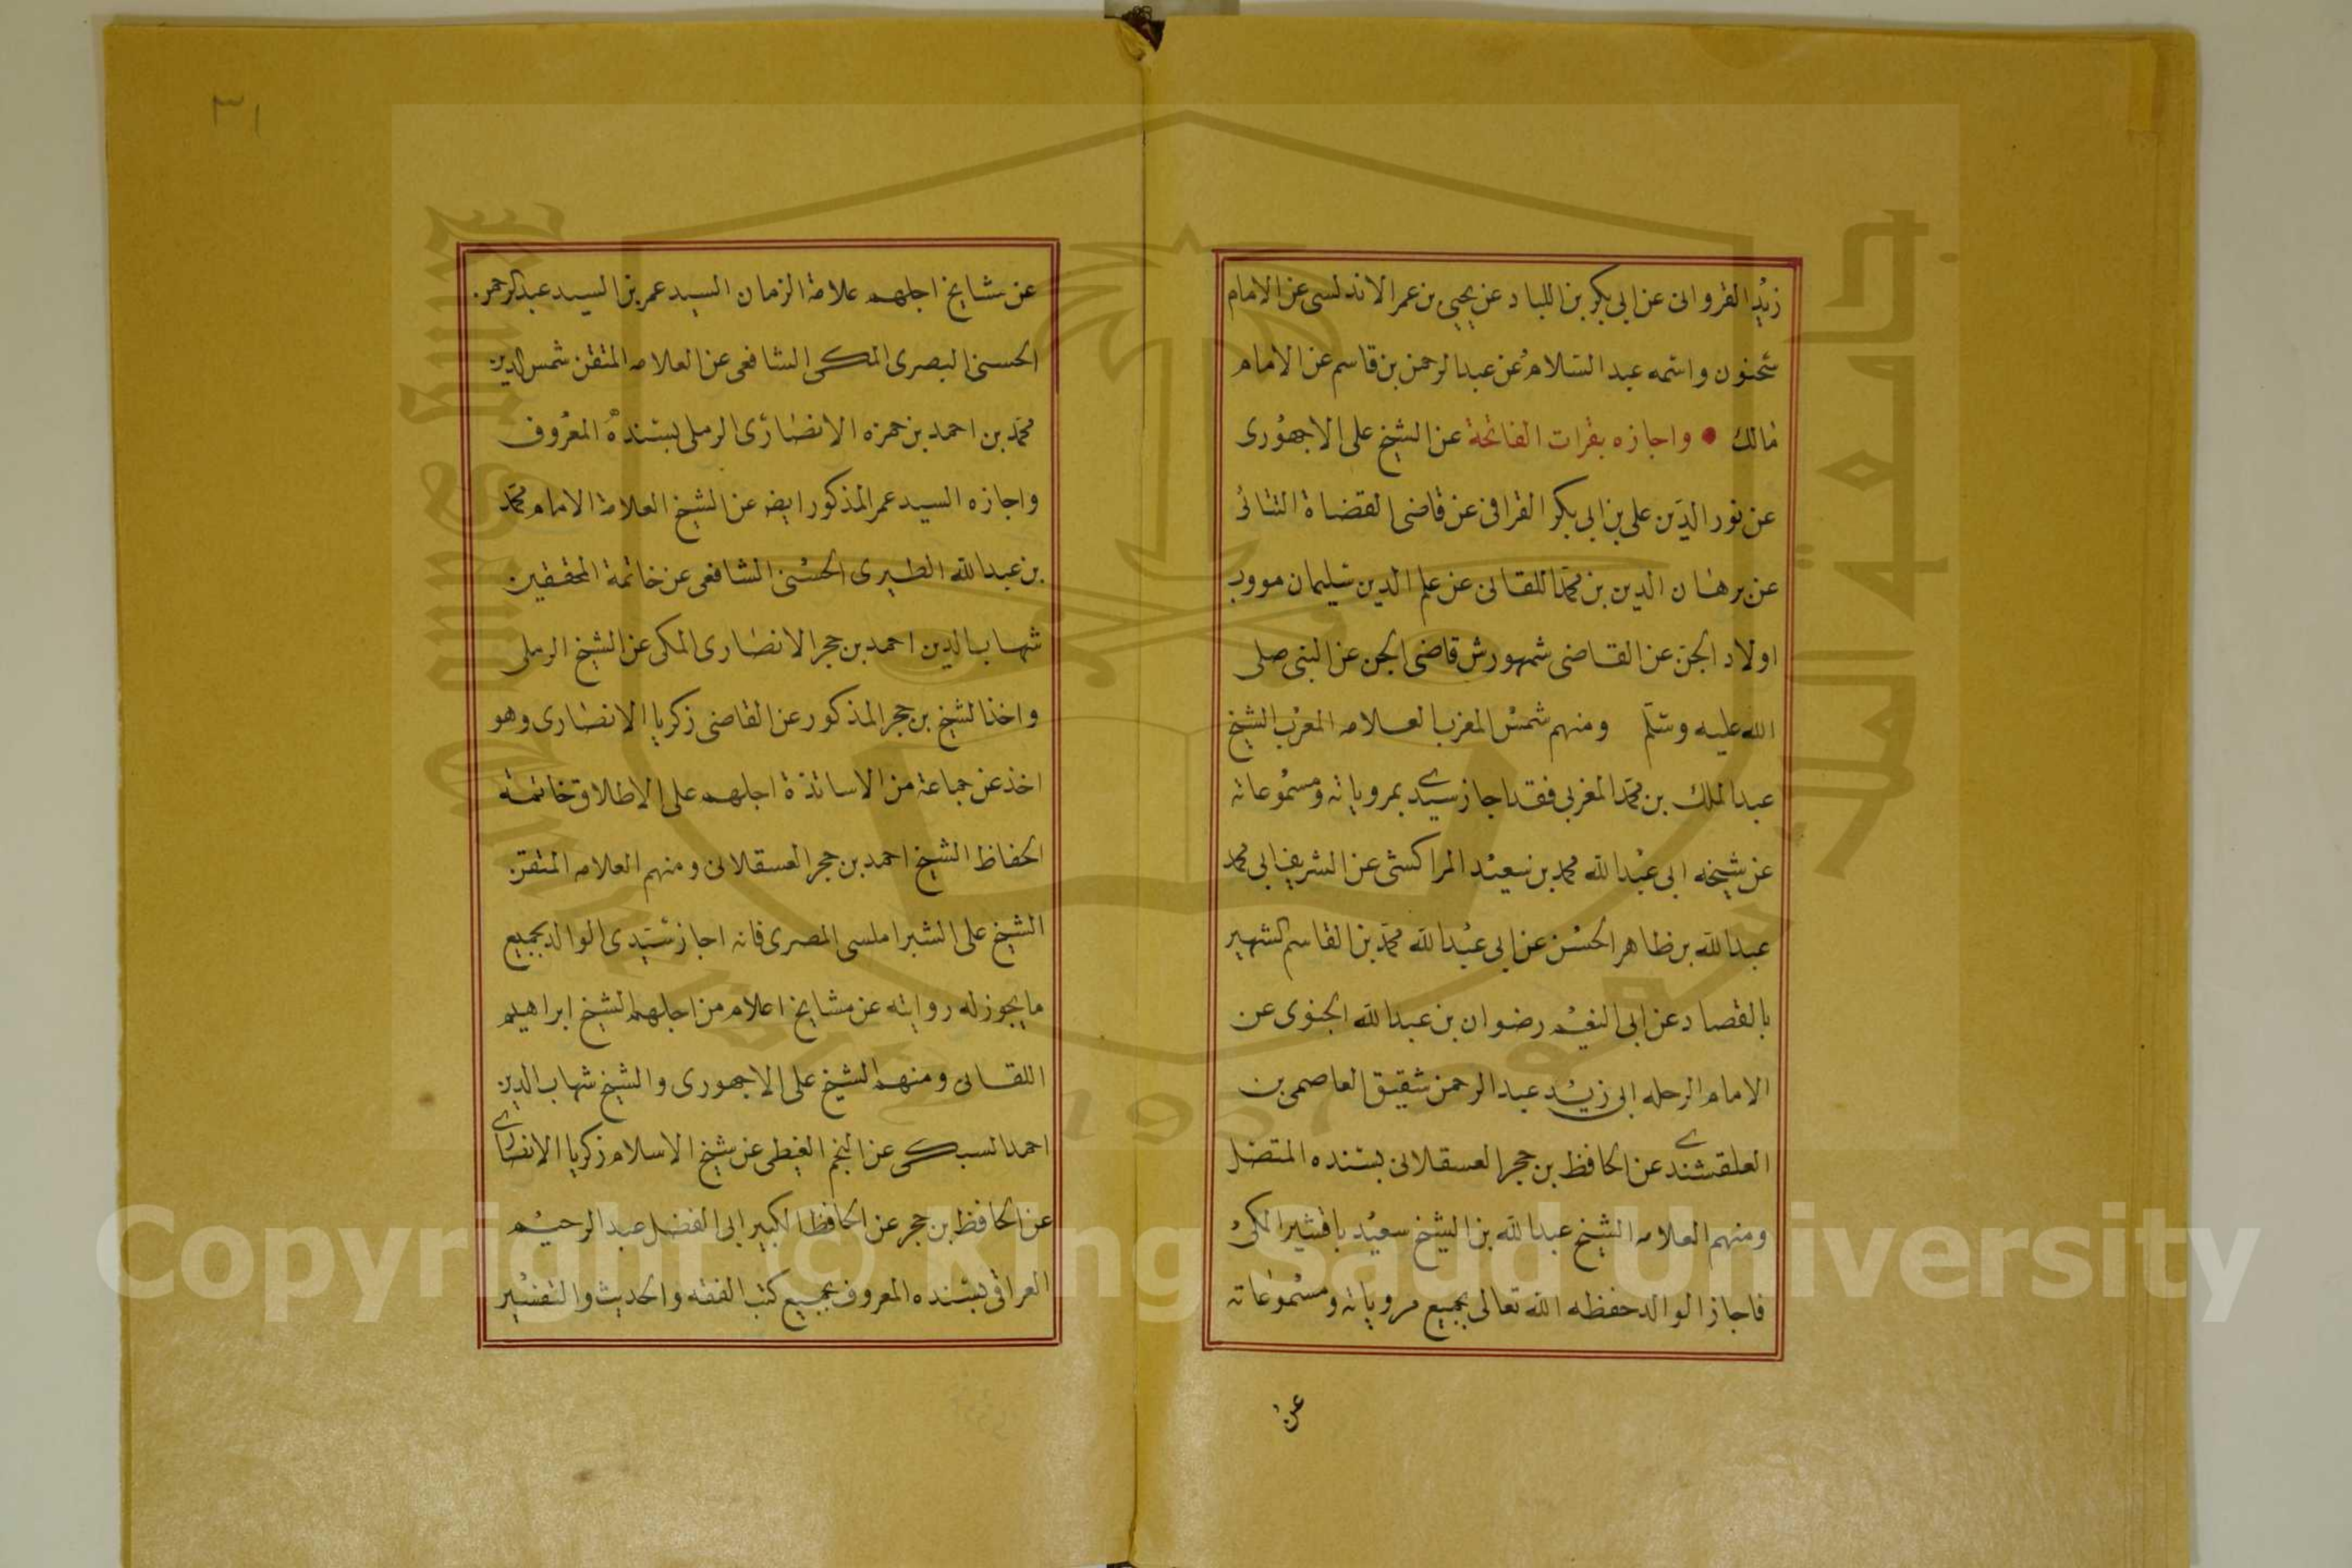 زيد القرواني عن ابي بكر بن اللباد عن يحيى بن عمر الاندلسي عن الامام
سحنون واسمه عبد السلام عن عبد الرحمن بن قاسم عن الامام
مالك • واجازه بقرات الفاتحة عن الشيخ على الاجهورى
عن نور الدين على بن ابي بكر القرافى عن قاضى القضاة التتائى
عن برهان الدين بن محمد اللقانى عن علم الدين سليمان مودب
اولاد الجن عن القاضى شمهورش قاضى الجن عن النبى صلى
الله عليه وسلم ومنهم شمس المغرب العلامه المعرب الشيخ
عبد الملك بن محمد المغربى فقد اجاز سيدى بمروياته ومسموعاته
عن شيخه ابى عبد الله محمد بن سعيد المراكشى عن الشريف ابى محمد
عبد الله بن طاهر الحسن عن ابى عبد الله محمد بن القاسم الشهير
بالقصاد عن ابى النعيم رضوان بن عبد الله الجنوى عن
الامام الرحله ابى زيد عبد الرحمن شقيق العاصمى بن
العلقشندى عن الحافظ بن حجر العسقلانى بسنده المتصل
ومنهم العلامه الشيخ عبد الله بن الشيخ سعيد باقشير المكى
فاجاز الوالد حفظه الله تعالى بجميع مروياته ومسموعاته
عن
٣١
عن مشايخ اجلهم علامة الزمان السيد عمر بن السيد عبد الرحمن
الحسنى البصرى المكى الشافعى عن العلامه المتقن شمس الدين
محمد بن احمد بن حمزه الانصارى الرملى بسنده المعروف
واجازه السيد عمر المذكور ايضه عن الشيخ العلامة الامام محمد
بن عبد الله الطبرى الحسنى الشافعى عن خاتمة المحققين
شهاب الدين احمد بن حجر الانصارى المكى عن الشيخ الرملى
واخذ الشيخ بن حجر المذكور عن القاضى زكريا الانصارى وهو
اخذ عن جماعة من الاساتذة اجلهم على الاطلاق خاتمة
الحفاظ الشيخ احمد بن حجر العسقلانى ومنهم العلامه المتقن
الشيخ على الشبراملسى المصرى فانه اجاز سيدى الوالد بجميع
ما يجوز له روايته عن مشايخ اعلام من اجلهم الشيخ ابراهيم
اللقانى ومنهم الشيخ على الاجهورى والشيخ شهاب الدين
احمد السبكى عن النجم الغيطى عن شيخ الاسلام زكريا الانصارى
عن الحافظ بن حجر عن الحافظ الكبير ابى الفضل عبد الرحيم
العراقى بسنده المعروف بجميع كتب الفقه والحديث والتفسير
Copyright © King Saud University